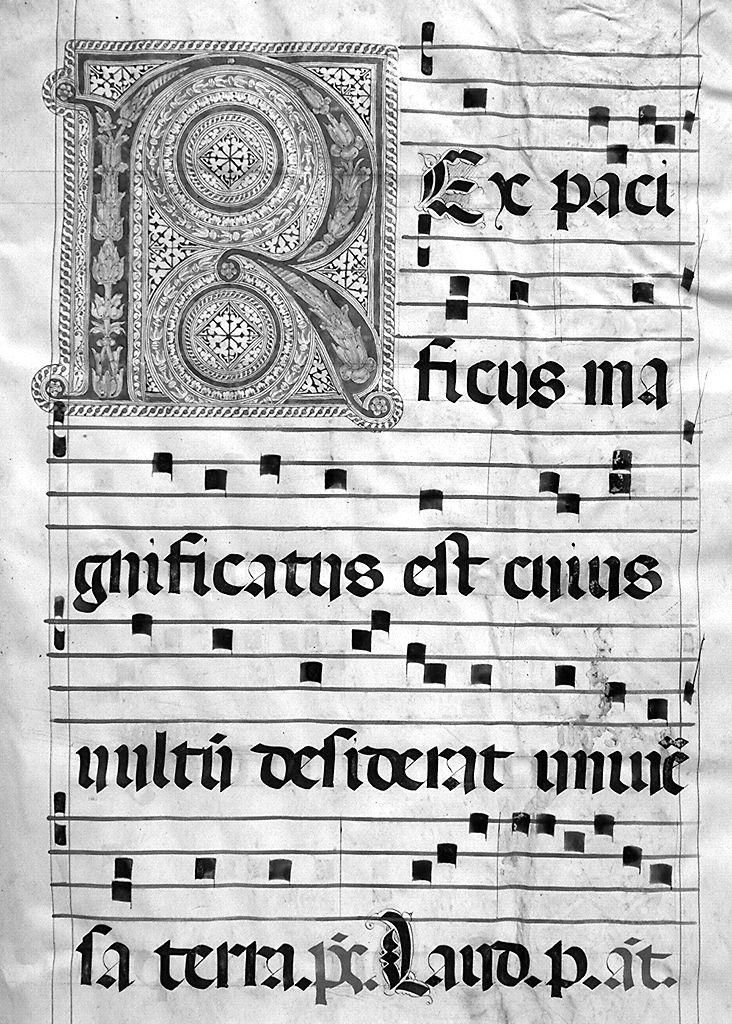 REx paci
ficus ma
gnificatus est cuius
uultū desiderat uniuē
sa terra. ps. Laud. p. at.